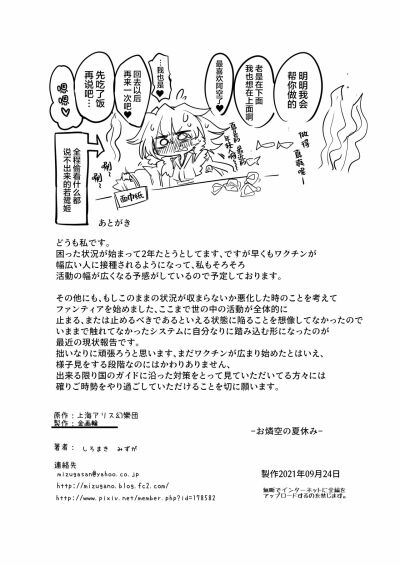 明明我会
帮你做的
老是在下面
我也想在上面啊
最喜欢阿空了♥
…我也是♥
回去以后
再来一次吧♥
先吃了饭
再说吧…
嗯嗯♥
全程偷看什么都
说不出来的若鹭姬
面巾纸
唰~
唰~
あとがき
どうも私です。
困った状況が始まって2年たとうとしてます、ですが早くもワクチンが
幅広い人に接種されるようになって、私もそろそろ
活動の幅が広くなる予感がしているので予定しております。
その他にも、もしこのままの状況が収まらないか悪化した時のことを考えて
ファンティアを始めました、ここまで世の中の活動が全体的に
止まる、または止めるべきであるといえる状態に陥ることを想像してなかったので
いままで触れてなかったシステムに自分なりに踏み込む形になったのが
最近の現状報告です。
拙いなりに頑張ろうと思います、まだワクチンが広まり始めたとはいえ、
様子見をする段階なのにはかわりありません、
出来る限り国のガイドに沿った対策をとって見ていただいてる方々には
確りご時勢をやり過ごしていただけることを切に願います。
原作：上海アリス幻樂団
製作：金画輪
-お燐空の夏休み-
著者： しろまき みずが
連絡先
mizugasan@yahoo.co.jp
http://mizugano.blog.fc2.com/
http://www.pixiv.net/member.php?id=178582
製作2021年09月24日
無断でインターネットに全編を
アップロードするのを禁じます。